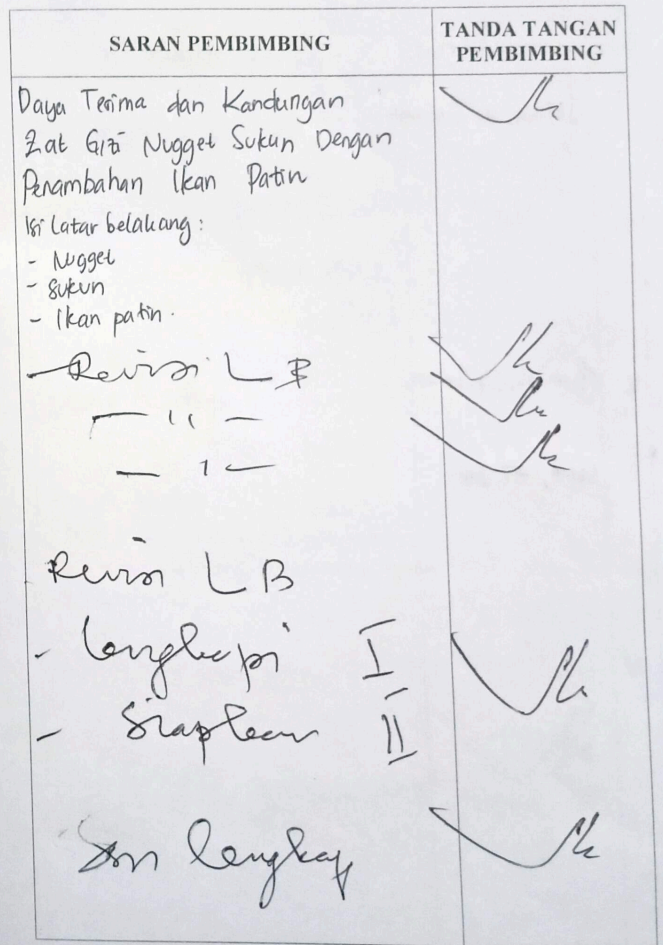 SARAN PEMBIMBING
TANDA TANGAN
PEMBIMBING
Daya Terima dan Kandungan
Zat Gizi Nugget Sukun Dengan
Penambahan Ikan Patin
Isi Latar belakang :
- Nugget
- Sukun
- Ikan patin.
- Revisi LB
— 11 —
— 1 —
Revisi LB
- lengkapi I
- Siapkan II
lengkap